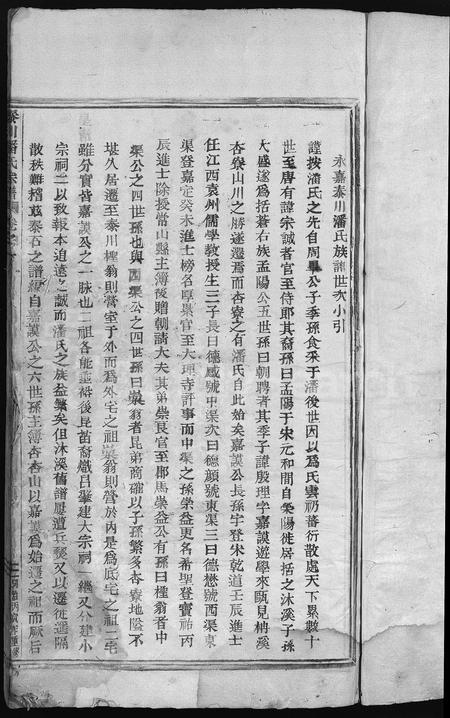 永嘉泰川潘氏族譜世次小引
謹按潘氏之先自周畢公子季孫食采于潘後世因以爲氏雲礽蕃衍散處天下累數十
世至唐有諱宗誠者官至侍郎其裔孫曰孟陽于宋元和間自滎陽徙居括之沐溪子孫
大盛遂爲括蒼右族孟陽公五世孫曰朝聘者其季子諱殷理字嘉謨遊學來甌見柟溪
杏寮山川之勝遂遷焉而杏寮之有潘氏自此始矣嘉謨公長孫宇登宋乾道壬辰進士
任江西袁州儒學教授生三子長曰德咸號中渠次曰德顯號東渠三曰德懋號西渠東
渠登嘉定癸未進士榜名厚累官至大理寺評事而中渠之孫崇益更名希聖登寶祐丙
辰進士除授當山縣主簿後贈朝請大夫其弟崇艮官至郡馬崇益公有孫曰權翁者中
渠公之四世孫也與西渠公之四世孫曰嵩翁者昆弟商確以子孫繁多杏寮地隘不
堪久居遷至泰川權翁則營室于外而爲外宅之祖嵩翁則營於內是爲底宅之祖二宅
雖分實皆嘉謨公之一脉也二祖各能垂裕後昆苗裔熾昌肇建大宗祠一繼又分建小
宗祠二以致報本追遠之誠而潘氏之族益繁矣但沐溪舊譜屢遭兵燹又以遷徙遥隔
散秩難稽茲泰石之譜組自嘉謨公之六世孫主簿杏山以嘉謨爲始遷之祖而厥后